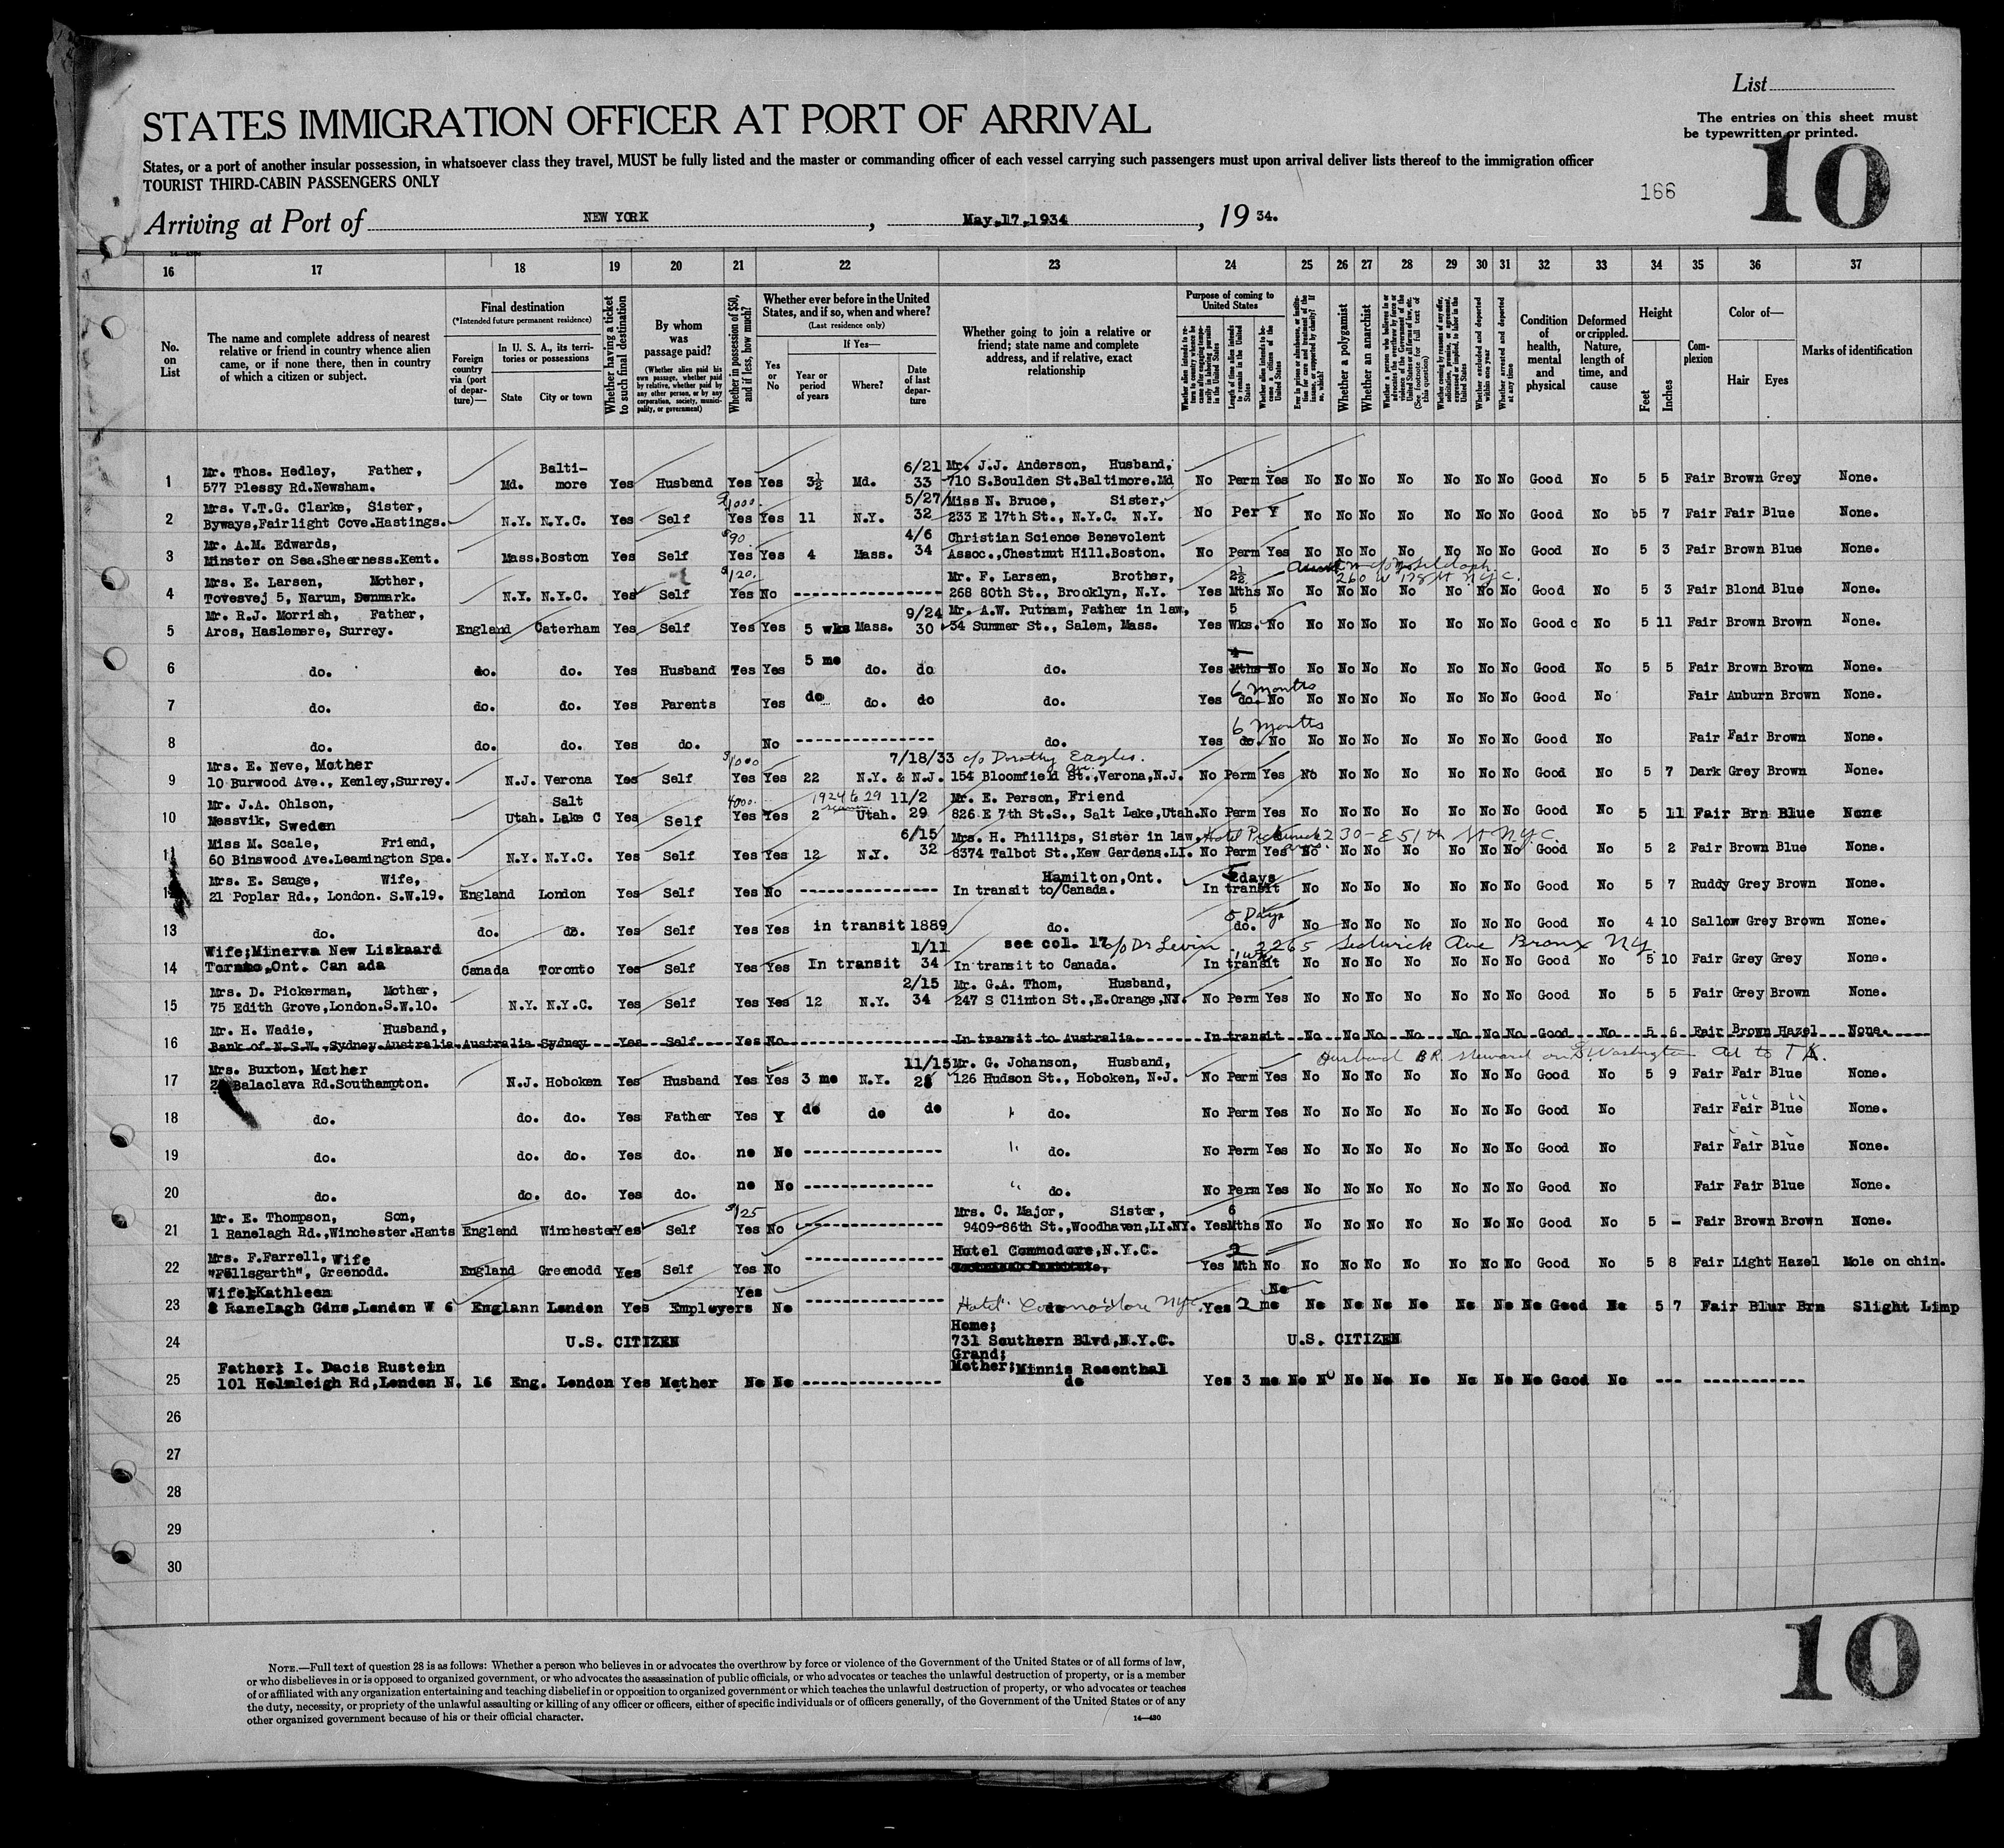 List
STATES IMMIGRATION OFFICER AT PORT OF ARRIVAL
The entries on this sheet must
be typewritten or printed.
States, or a port of another insular possession, in whatsoever class they travel, MUST be fully listed and the master or commanding officer of each vessel carrying such passengers must upon arrival deliver lists thereof to the immigration officer
TOURIST THIRD-CABIN PASSENGERS ONLY
10
166
Arriving at Port of NEW YORK, May,17,1934, 1934.
16 17 18 19 20 21 22 23 24 25 26 27 28 29 30 31 32 33 34 35 36 37
No. on List
The name and complete address of nearest relative or friend in country whence alien came, or if none there, then in country of which a citizen or subject.
Final destination
(*Intended future permanent residence)
Foreign country via (port of departure)—
In U. S. A., its territories or possessions
State
City or town
Whether having a ticket to such final destination
By whom was passage paid?
(Whether alien paid his own passage, whether paid by relative, whether paid by any other person, or by any corporation, society, municipality, or government)
Whether in possession of $50, and if less, how much?
Whether ever before in the United States, and if so, when and where?
(Last residence only)
Yes or No
If Yes—
Year or period of years
Where?
Date of last departure
Whether going to join a relative or friend; state name and complete address, and if relative, exact relationship
Purpose of coming to United States
Length of time alien intends to remain in the United States
Whether alien intends to become a citizen of the United States
Whether a polygamist
Whether an anarchist
Condition of health, mental and physical
Deformed or crippled. Nature, length of time, and cause
Height
Feet
Inches
Complexion
Color of—
Hair
Eyes
Marks of identification
1 Mr. Thos. Hedley, Father, Balti- 6/21 Mr. J.J. Anderson, Husband,
577 Plessy Rd.Newsham. Md. more Yes Husband Yes Yes 3½ Md. 33 710 S.Boulden St.Baltimore.Md No Perm Yes No No No No No No No Good No 5 5 Fair Brown Grey None.
2 Mrs. V.T.G. Clarke, Sister, $1000. 5/27/ Miss N. Bruce, Sister,
Byways,Fairlight Cove.Hastings. N.Y. N.Y.C. Yes Self Yes Yes 11 N.Y. 32 233 E 17th St., N.Y.C. N.Y. No Per Y No No No No No No No Good No 5 7 Fair Fair Blue None.
3 Mr. A.M. Edwards, $90. 4/6 Christian Science Benevolent
Minster on Sea.Sheerness.Kent. Mass. Boston Yes Self Yes Yes 4 Mass. 34 Assoc.,Chestnut Hill.Boston. No Perm Yes No No No No No No No Good No 5 3 Fair Brown Blue None.
4 Mrs. E. Larsen, Mother, $120. Mr. F. Larsen, Brother, 2½ 260 W 178 St N.Y.C.
Tovesvej 5, Narum, Denmark. N.Y. N.Y.C. Yes Self Yes No ---------------- 268 80th St., Brooklyn, N.Y. Yes Mths No No No No No No No No Good No 5 3 Fair Blond Blue None.
5 Mr. R.J. Morrish, Father, 9/24 Mr. A.W. Putnam, Father in law, 5
Aros, Haslemere, Surrey. England Caterham Yes Self Yes Yes 5 wks Mass. 30 34 Summer St., Salem, Mass. Yes Wks. No No No No No No No No Good No 5 11 Fair Brown Brown None.
6 do. do. do. Yes Husband Yes Yes 5 mo do. do do. Yes 4 Mths No No No No No No No No Good No 5 5 Fair Brown Brown None.
7 do. do. do. Yes Parents Yes do do. do do. Yes 6 months do. No No No No No No No No Good No Fair Auburn Brown None.
8 do. do. do. Yes do. No ---------------- do. Yes 6 Months do. No No No No No No No No Good No Fair Fair Brown None.
9 Mrs. E. Neve, Mother $1000 7/18/33 c/o Dorothy Eagles. Ave.
10 Burwood Ave., Kenley,Surrey. N.J. Verona Yes Self Yes Yes 22 N.Y. & N.J. 154 Bloomfield St.,Verona,N.J. No Perm Yes No No No No No No No Good No 5 7 Dark Grey Brown None.
10 Mr. J.A. Ohlson, Salt 4000. 1924 to 29 11/2 Mr. E. Person, Friend
Messvik, Sweden Utah. Lake C Yes Self Yes Yes 2 Utah. 29 826 E 7th St.S., Salt Lake,Utah. No Perm Yes No No No No No No No Good No 5 11 Fair Brn Blue None
11 Miss M. Scale, Friend, 6/15/ Mrs. H. Phillips, Sister in law, Hotel Pickwick 230-E 51th St N.Y.C.
60 Binswood Ave.Leamington Spa. N.Y. N.Y.C. Yes Self Yes Yes 12 N.Y. 32 8374 Talbot St.,Kew Gardens.LI. No Perm Yes No No No No No No No Good No 5 2 Fair Brown Blue None.
12 Mrs. E. Sauge, Wife, Hamilton,Ont. days
21 Poplar Rd., London. S.W.19. England London Yes Self Yes No ---------------- In transit to/Canada. In transit No No No No No No No Good No 5 7 Ruddy Grey Brown None.
13 do. do. do. Yes Self Yes Yes in transit 1889 do. 5 Days do. No No No No No No No Good No 4 10 Sallow Grey Brown None.
14 Wife;Minerva New Liskaard 1/11 see col. 17 c/o Dr Levin 2265 Sedwick Ave Bronx NY
Toronto,Ont. Can ada Canada Toronto Yes Self Yes Yes In transit 34 In transit to Canada. In transit No No No No No No No Good No 5 10 Fair Grey Grey None.
15 Mrs. D. Pickerman, Mother, 2/15 Mr. G.A. Thom, Husband,
75 Edith Grove,London.S.W.10. N.Y. N.Y.C. Yes Self Yes Yes 12 N.Y. 34 247 S Clinton St.,E.Orange,NJ. No Perm Yes No No No No No No No Good No 5 5 Fair Grey Brown None.
16 Mr. H. Wadie, Husband,
Bank of N.S.W.,Sydney.Australia Australia Sydney Yes Self Yes No In transit to Australia. In transit No No No No No No No Good No 5 6 Fair Brown Hazel None.
17 Mrs. Buxton, Mother 11/15 Mr. G. Johanson, Husband, Husband steward on Washington
Balaclava Rd.Southampton. N.J. Hoboken Yes Husband Yes Yes 3 mo N.Y. 126 Hudson St., Hoboken, N.J. No Perm Yes No No No No No No No Good No 5 9 Fair Fair Blue None.
18 do. do. do. Yes Father Yes Y do do do do. No Perm Yes No No No No No No No Good No Fair Fair Blue None.
19 do. do. do. Yes do. no No ---------------- do. No Perm Yes No No No No No No No Good No Fair Fair Blue None.
20 do. do. do. Yes do. no No ---------------- do. No Perm Yes No No No No No No No Good No Fair Fair Blue None.
21 Mr. E. Thompson, Son, $125 Mrs. C. Major, Sister, 6
1 Ranelagh Rd.,Winchester.Hants England Winchester Yes Self Yes No ---------------- 9409-86th St.,Woodhaven,LI.NY. Yes Mths No No No No No No No No Good No 5 - Fair Brown Brown None.
22 Mrs. F.Farrell, Wife Hotel Commodore,N.Y.C. 2
"Fellsgarth", Greenodd. England Greenodd Yes Self Yes No ---------------- Yes Mth No No No No No No No No Good No 5 8 Fair Light Hazel Mole on chin.
23 Wife;Kathleen Yes No
8 Ranelagh Gdns,London W 6 Englann London Yes Employers No ---------------- Hotel Commodore NYC. Yes 2 mo No No No No No No No Good No 5 7 Fair Blur Brn Slight Limp
24 U.S. CITIZEN Home;
731 Southern Blvd,N.Y.C. U.S. CITIZEN
25 Father; I. Dacis Rustein Grand;
Mother;Minnis Rosenthal
101 Holmleigh Rd,London N. 16 Eng. London Yes Mother No No ---------------- do Yes 3 mo No No No No No No No No Good No --- -----------
26
27
28
29
30
NOTE.—Full text of question 28 is as follows: Whether a person who believes in or advocates the overthrow by force or violence of the Government of the United States or of all forms of law,
or who disbelieves in or is opposed to organized government, or who advocates the assassination of public officials, or who advocates or teaches the unlawful destruction of property, or is a member
of or affiliated with any organization entertaining and teaching disbelief in or opposition to organized government or which teaches the unlawful destruction of property, or who advocates or teaches
the duty, necessity, or propriety of the unlawful assaulting or killing of any officer or officers, either of specific individuals or of officers generally, of the Government of the United States or of any
other organized government because of his or their official character.
14—430
10